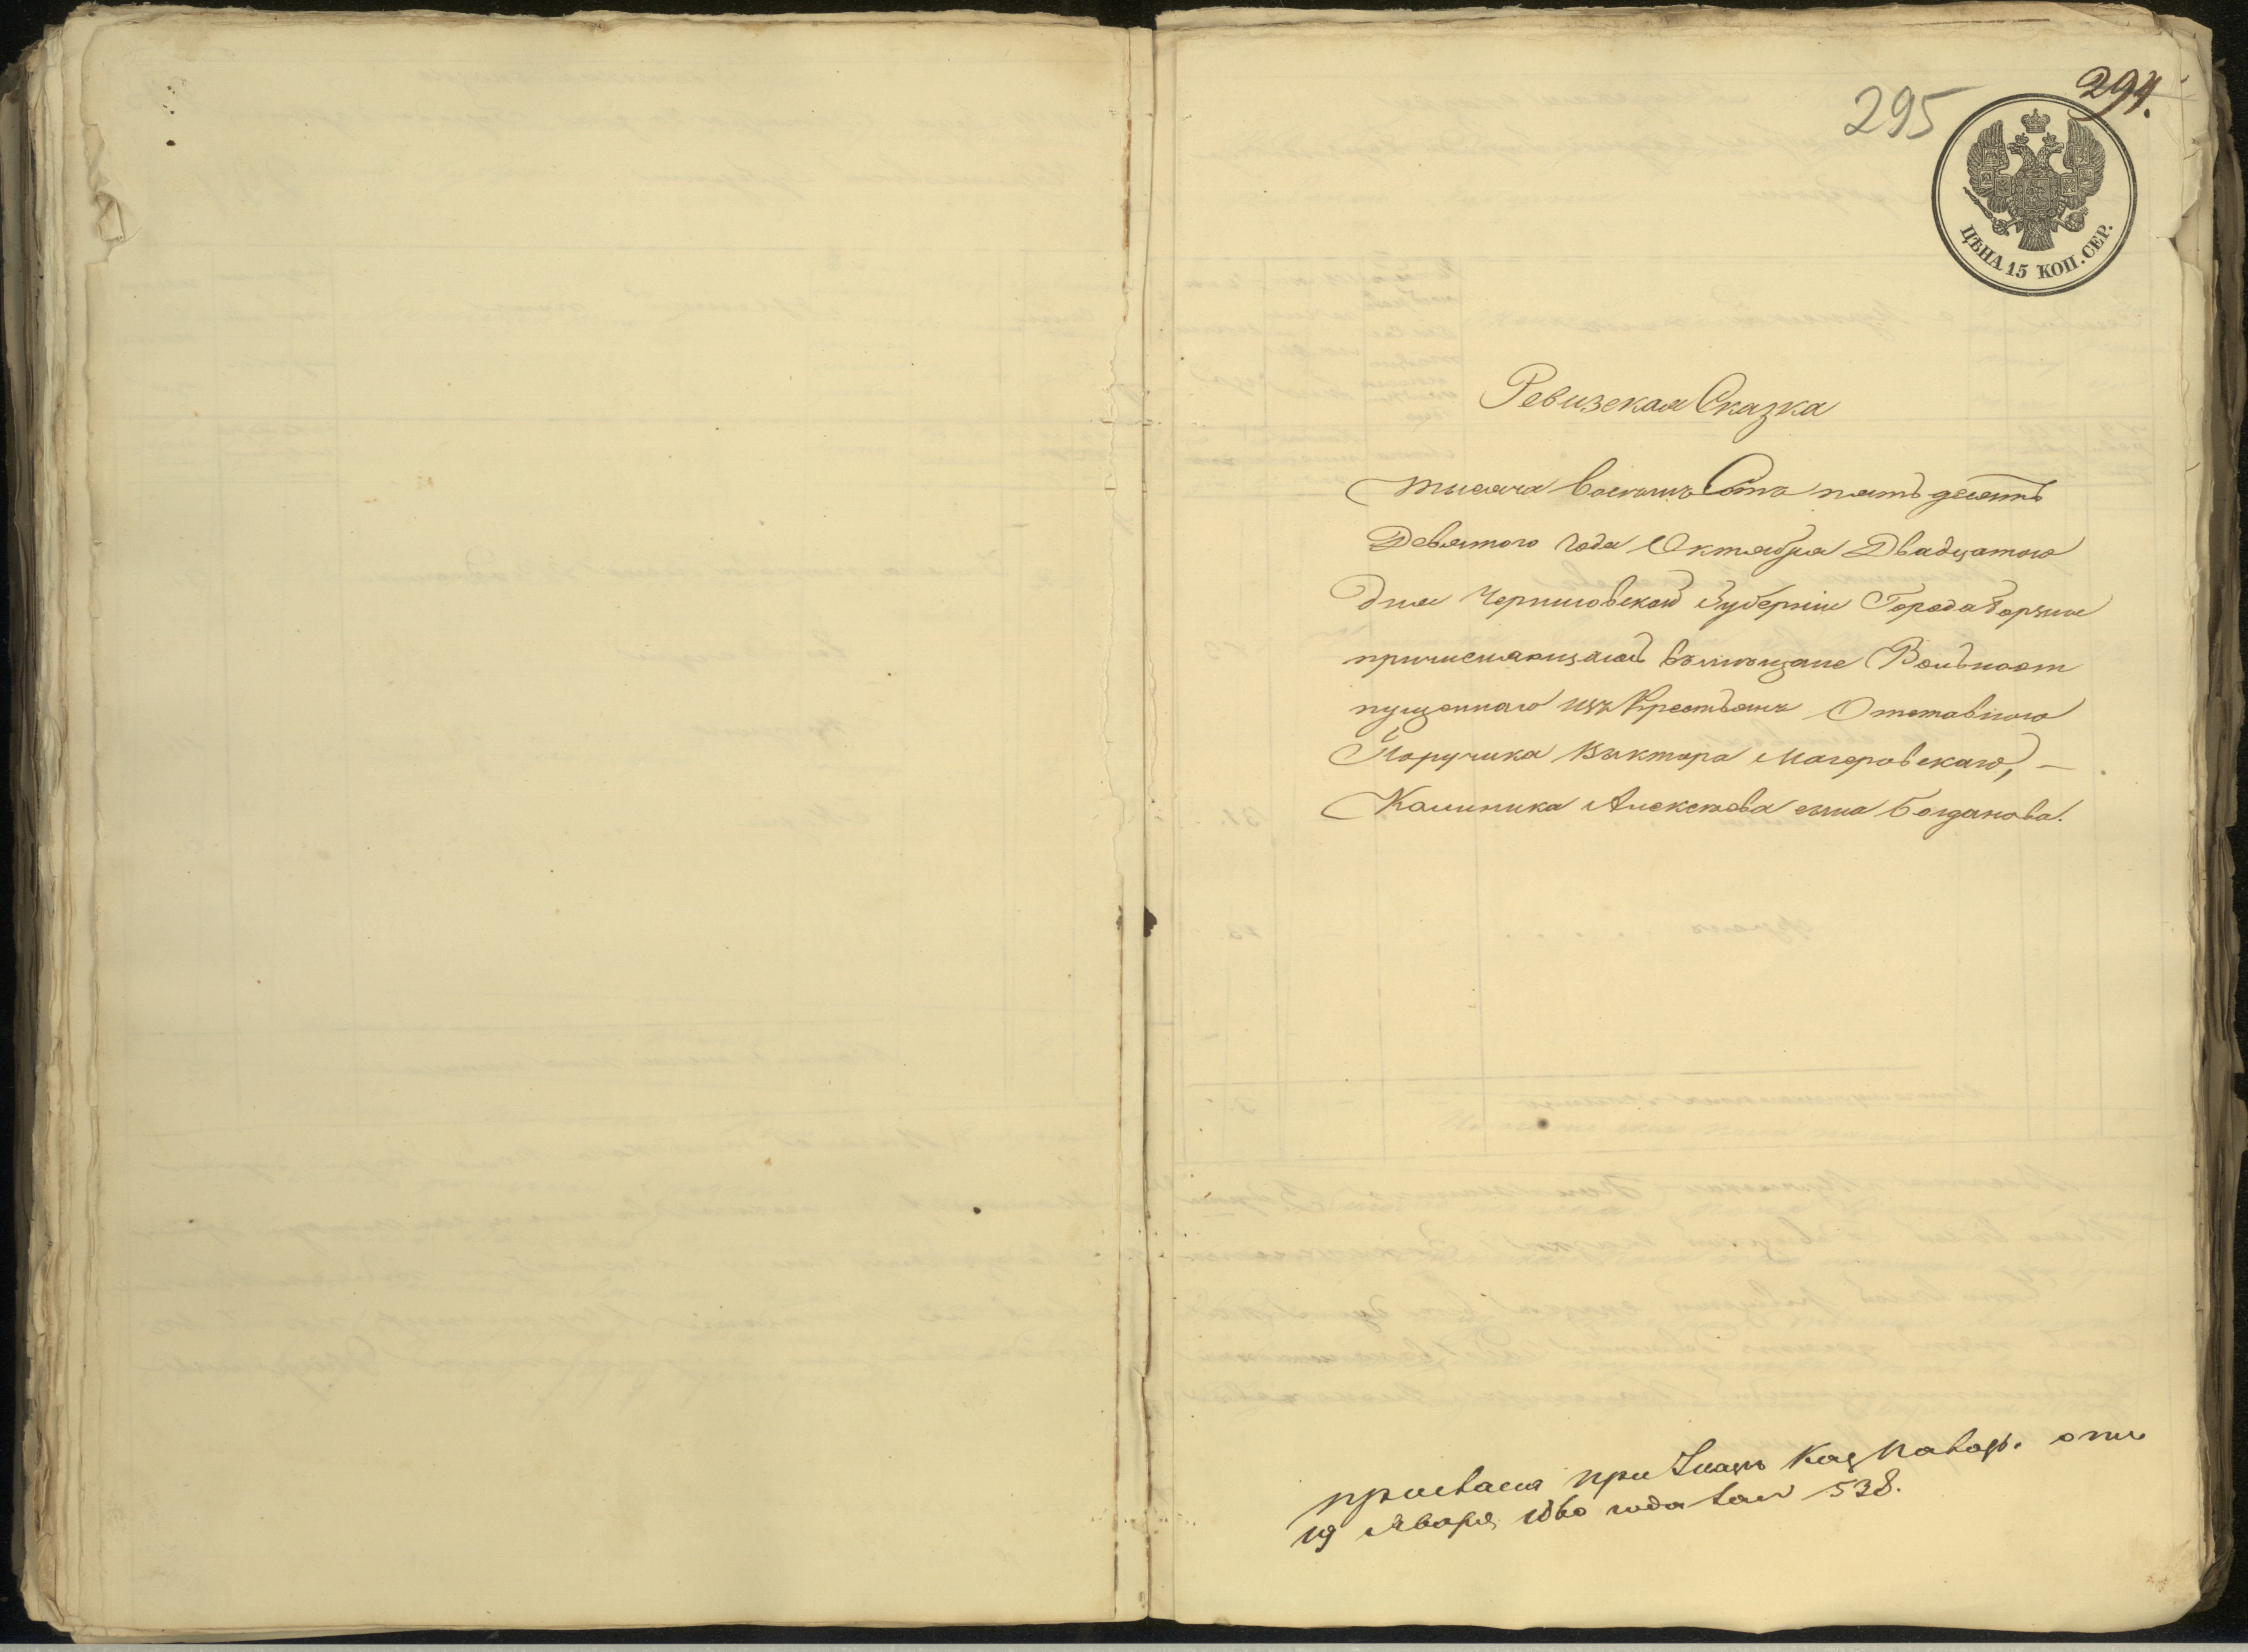 295
294.
ЦѢНА 15 КОП. СЕР.
Ревизская Сказка
тысяча восемь Сотъ пятьдесятъ
Девятого года Октября Двадцатого
дня Черниговской Губернiи Города Борзны
причисляющагось въ мѣщане Вольноот
пущенного изъ Крестьянъ Отставного
Поручика Выктора Магеровскаго, —
Калиника Алексѣева сына Богданова.
при Казнач. отъ
19 Январа 1860 года за № 538.